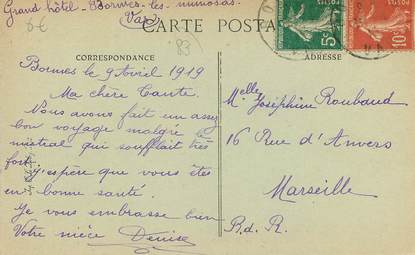 Grand hôtel - Bormes-les-mimosas.
Var
6€
83
CARTE POSTA
CORRESPONDANCE
ADRESSE
5c
10c
Bormes le 9 Avril 1919
Ma chère Tante.
Nous avons fait un assez
bon voyage malgré le
mistral qui soufflait très
fort, j'espère que vous êtes
en bonne santé.
Je vous embrasse bien
Votre nièce Denise
Melle Joséphine Roubaud
16 Rue d'Anvers
Marseille
B.d.R.